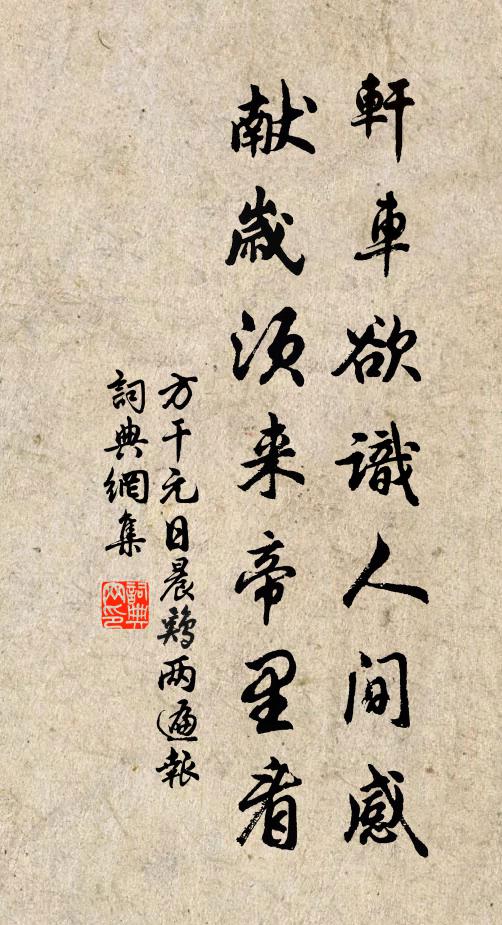 軒車欲識人間感
献歲須来帝里看
方干元日晨鷄兩遍報
詞典網集
詞典網印